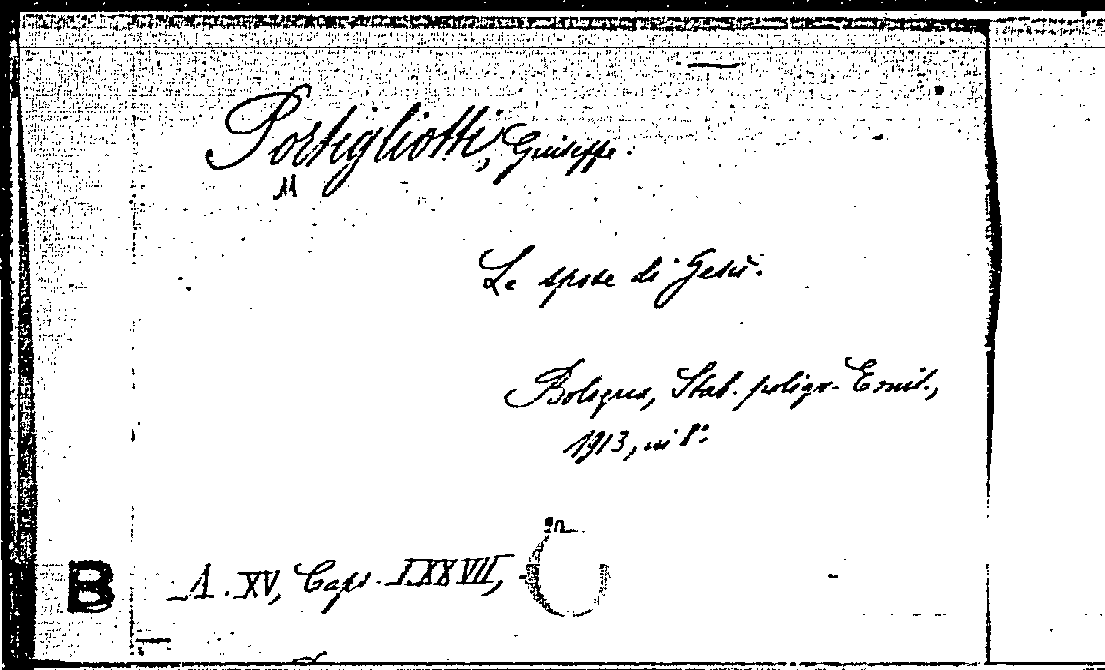 Portigliotti, Giuseppe.
11
Le spose di Gesù.
Bologna, Stab. poligr. Emil.,
1913, in 8°.
B A. XV, Caps. LXXVII,